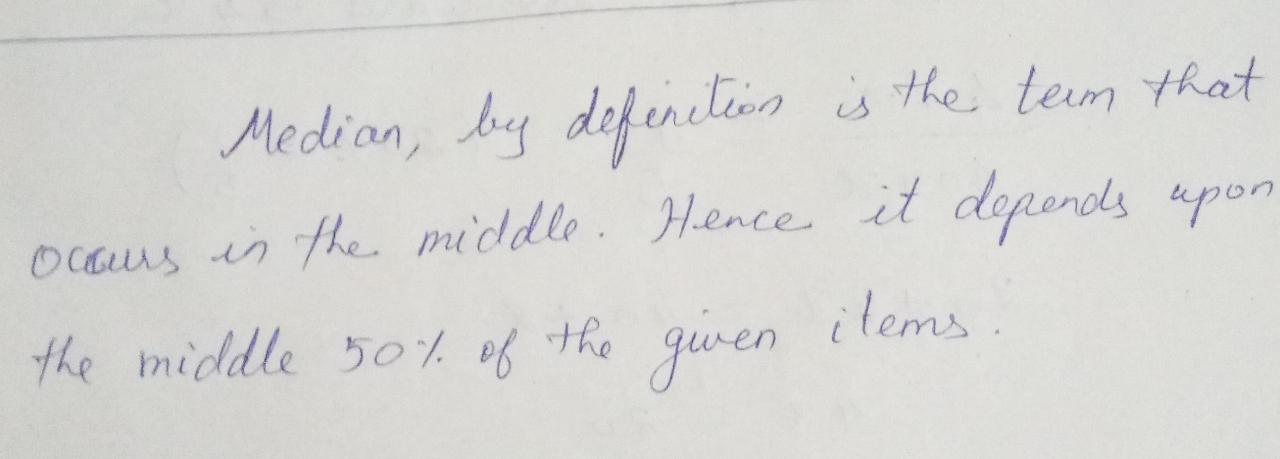 Median, by definition is the term that
occurs in the middle. Hence it depends upon
the middle 50% of the given items.